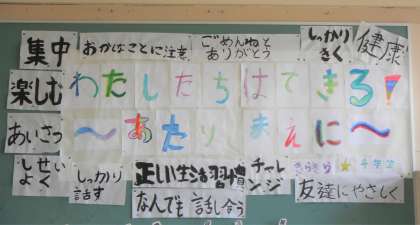 集中
おかなことに注意
ごめんねと
ありがとう
しっかり
きく
健康
楽しむ
わたしたちはできる!
あいさつ
〜あたりまえに〜
しせい
よく
しっかり
話す
正しい生活習慣
チャレ
ンジ
きらきら
友達にやさしく
なんでも話し合う